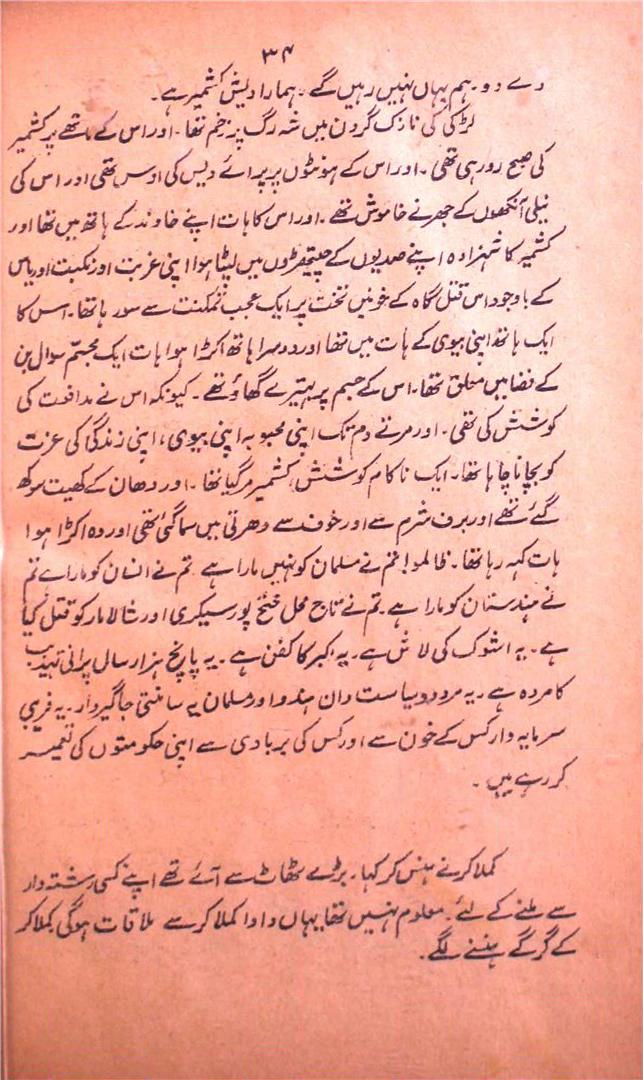 ۳۴
دے دو۔ ہم یہاں نہیں رہیں گے۔ ہمارا دیش کشمیر ہے۔
لڑکی کی نازک گردن میں شہ رگ پر زخم تھا۔ اور اس کے ماتھے پر کشمیر
کی صبح رو رہی تھی۔ اور اس کے ہونٹوں پر پرائے دیس کی اوس تھی اور اس کی
نیلی آنکھوں کے جھرنے خاموش تھے۔ اور اس کا ہات اپنے خاوند کے ہاتھ میں تھا اور
کشمیر کا شہزادہ اپنے صدیوں کے چیتھڑوں میں لپٹا ہوا اپنی غربت اور نکبت اور یاس
کے باوجود اس قتل گاہ کے خونیں تخت پر ایک عجب تمکنت سے سو رہا تھا۔ اس کا
ایک ہاتھ اپنی بیوی کے ہات میں تھا اور دوسرا ہاتھ اکڑا ہوا ہات ایک مجسّم سوال بن
کے فضا میں معلق تھا۔ اس کے جسم پر بہتیرے گھاؤ تھے۔ کیونکہ اس نے مدافعت کی
کوشش کی تھی۔ اور مرتے دم تک اپنی محبوبہ اپنی بیوی، اپنی زندگی کی عزت
کو بچانا چاہا تھا۔ ایک ناکام کوشش، کشمیر مر گیا تھا۔ اور دھان کے کھیت سوکھ
گئے تھے اور برف شرم سے اور خوف سے دھرتی میں سما گئی تھی اور وہ اکڑا ہوا
ہات کہہ رہا تھا۔ ظالمو! تم نے مسلمان کو نہیں مارا ہے تم نے انسان کو مارا ہے تم
نے ہندستان کو مارا ہے۔ تم نے تاج محل فتح پور سیکری اور شالامار کو قتل کیا
ہے۔ یہ اشوک کی لاش ہے۔ یہ اکبر کا کفن ہے۔ یہ پانچ ہزار سال پرانی تہذیب
کا مردہ ہے۔ یہ مردود سیاست دان ہندو اور مسلمان یہ سامنتی جاگیردار۔ یہ فریبی
سرمایہ دار کس کے خون سے اور کس کی بربادی سے اپنی حکومتوں کی تعمیر
کر رہے ہیں۔
کملاکر نے ہنس کر کہا۔ بڑے ٹھاٹ سے آئے تھے اپنے کسی رشتہ دار
سے ملنے کے لئے۔ معلوم نہیں تھا یہاں دادا کملاکر سے ملاقات ہوگی۔ کملاکر
کے گرگے ہنسنے لگے۔